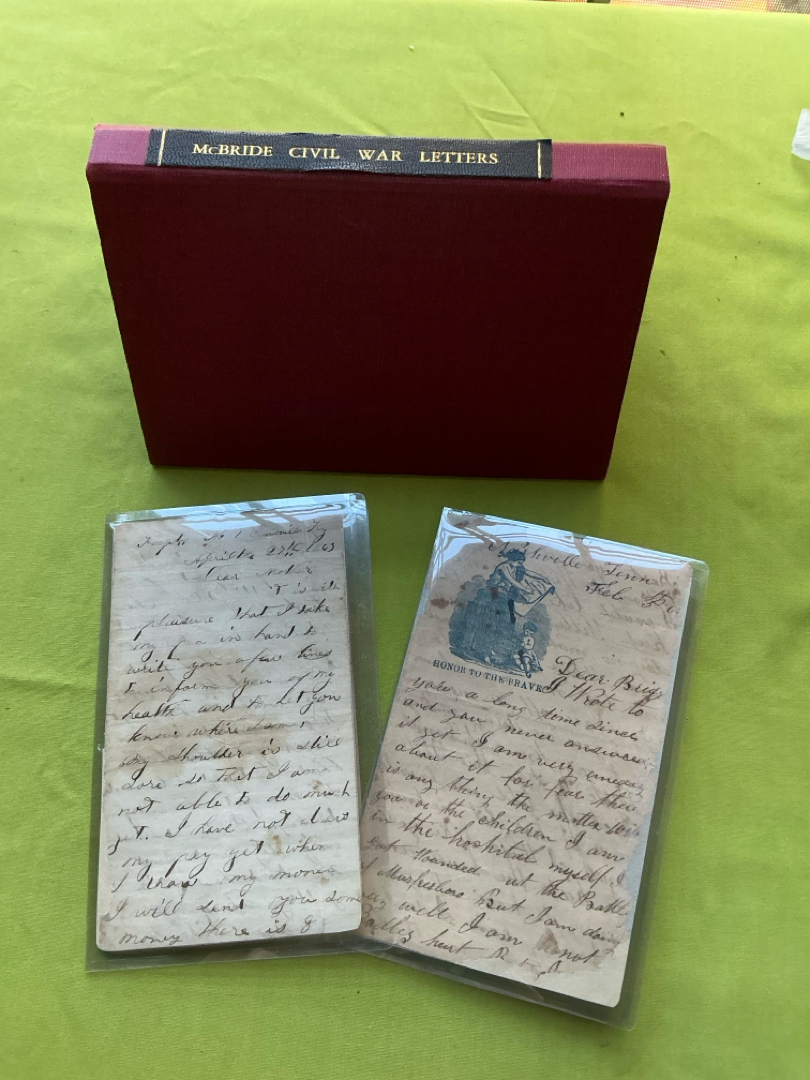 McBRIDE CIVIL WAR LETTERS
Aprill 27th 1863
Dear Mother
it is with
pleasure that I take
my pen in hand to
write you a few lines
to inform you of my
health and to let you
know where I am
my shoulder is still
sore so that I am
not able to do much
yet. I have not drawn
my pay yet when
I draw my money
I will send you some
money there is 8
Nashville Tenn
Feb
HONOR TO THE BRAVE
Dear Brig
I Wrote to
you a long time since
and you never answered
it yet I am very uneasy
about it for fear there
is any thing the matter with
you or the children I am
in the hospital myself I
got Wounded at the Battle
Murfresboro But I am doing
well I am not
hurt